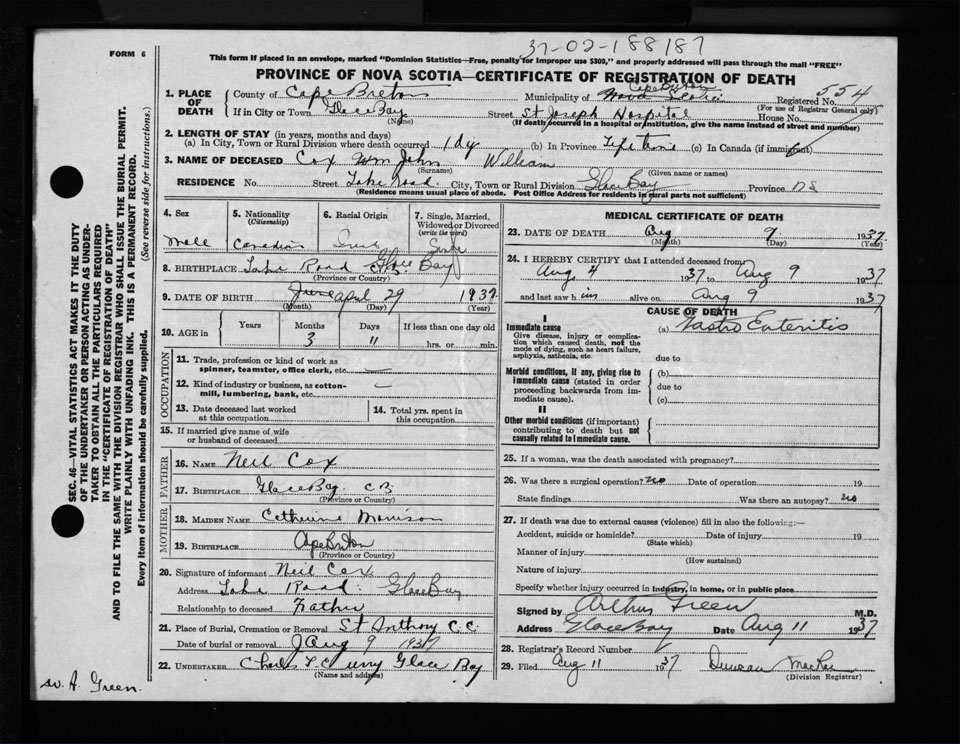 37-02-188187
FORM 6
This form if placed in an envelope, marked "Dominion Statistics—Free, penalty for improper use $300," and properly addressed will pass through the mail "FREE"
PROVINCE OF NOVA SCOTIA—CERTIFICATE OF REGISTRATION OF DEATH
SEC. 46—VITAL STATISTICS ACT MAKES IT THE DUTY
OF THE UNDERTAKER OR PERSON ACTING AS UNDER-
TAKER TO OBTAIN ALL THE PARTICULARS REQUIRED
IN THE "CERTIFICATE OF REGISTRATION OF DEATH"
AND TO FILE THE SAME WITH THE DIVISION REGISTRAR WHO SHALL ISSUE THE BURIAL PERMIT.
WRITE PLAINLY WITH UNFADING INK. THIS IS A PERMANENT RECORD.
Every item of information should be carefully supplied. (See reverse side for instructions.)
1. PLACE OF DEATH
County of Cape Breton Municipality of Nova Scotia Cape Breton Registered No. 554
(For use of Registrar General only)
If in City or Town Glace Bay Street St Joseph Hospital House No.
(Name) (If death occurred in a hospital or institution, give the name instead of street and number)
2. LENGTH OF STAY (in years, months and days)
(a) In City, Town or Rural Division where death occurred 1 dy (b) In Province Life time (c) In Canada (if immigrant)
3. NAME OF DECEASED Cox Wm John William
(Surname) (Given name or names)
RESIDENCE No. Street Lake Road City, Town or Rural Division Glace Bay Province N S
(Residence means usual place of abode. Post Office Address for residents in rural parts not sufficient)
4. Sex 5. Nationality (Citizenship) 6. Racial Origin 7. Single, Married, Widowed or Divorced (write the word)
Male Canadian Single
8. BIRTHPLACE Lake Road Glace Bay C.B.
(Province or Country)
9. DATE OF BIRTH June April 29 1937
(Month) (Day) (Year)
10. AGE in Years Months Days If less than one day old
3 11 hrs. or min.
OCCUPATION
11. Trade, profession or kind of work as
spinner, teamster, office clerk, etc. —
12. Kind of industry or business, as cotton-
mill, lumbering, bank, etc. —
13. Date deceased last worked
at this occupation
14. Total yrs. spent in
this occupation
15. If married give name of wife
or husband of deceased
FATHER
16. NAME Neil Cox
17. BIRTHPLACE Glace Bay C B
(Province or Country)
MOTHER
18. MAIDEN NAME Catherine Morrison
19. BIRTHPLACE Cape Breton
(Province or Country)
20. Signature of informant Neil Cox
Address Lake Road Glace Bay
Relationship to deceased Father
21. Place of Burial, Cremation or Removal St Anthony C.C.
Date of burial or removal Aug 9 1937
22. UNDERTAKER Charles T Curry Glace Bay
(Name and address)
sv. A. Green.
MEDICAL CERTIFICATE OF DEATH
23. DATE OF DEATH Aug 9 1937
(Month) (Day) (Year)
24. I HEREBY CERTIFY that I attended deceased from
Aug 4 1937 to Aug 9 1937
and last saw h im alive on Aug 9 1937
CAUSE OF DEATH
I
Immediate cause
Give disease, injury or complica-
tion which caused death, not the
mode of dying, such as heart failure,
asphyxia, asthenia, etc.
(a) Gastro Enteritis
due to
Morbid conditions, if any, giving rise to
immediate cause (stated in order
proceeding backwards from im-
mediate cause).
(b)
due to
(c)
II
Other morbid conditions (if important)
contributing to death but not
causally related to immediate cause.
25. If a woman, was the death associated with pregnancy?
26. Was there a surgical operation? no Date of operation 19
State findings Was there an autopsy? no
27. If death was due to external causes (violence) fill in also the following:—
Accident, suicide or homicide? Date of injury 19
(State which)
Manner of injury
(How sustained)
Nature of injury
Specify whether injury occurred in industry, in home, or in public place
Signed by Arthur Green M.D.
Address Glace Bay Date Aug 11 1937
28. Registrar's Record Number
29. Filed Aug 11 1937 Duncan MacRae
(Division Registrar)